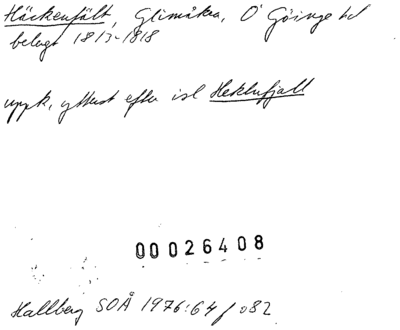 Häckenfält, Glimåkra, Ö Göinge hd
belagt 1813-1818
uppk, ytterst efter isl Heklufjall
00026408
Hallberg SOÅ 1976:64 f o 82